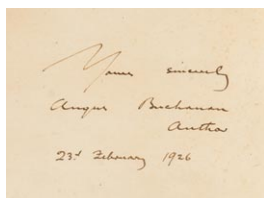 Yours sincerely
Angus Buchanan
Author
23rd February 1926